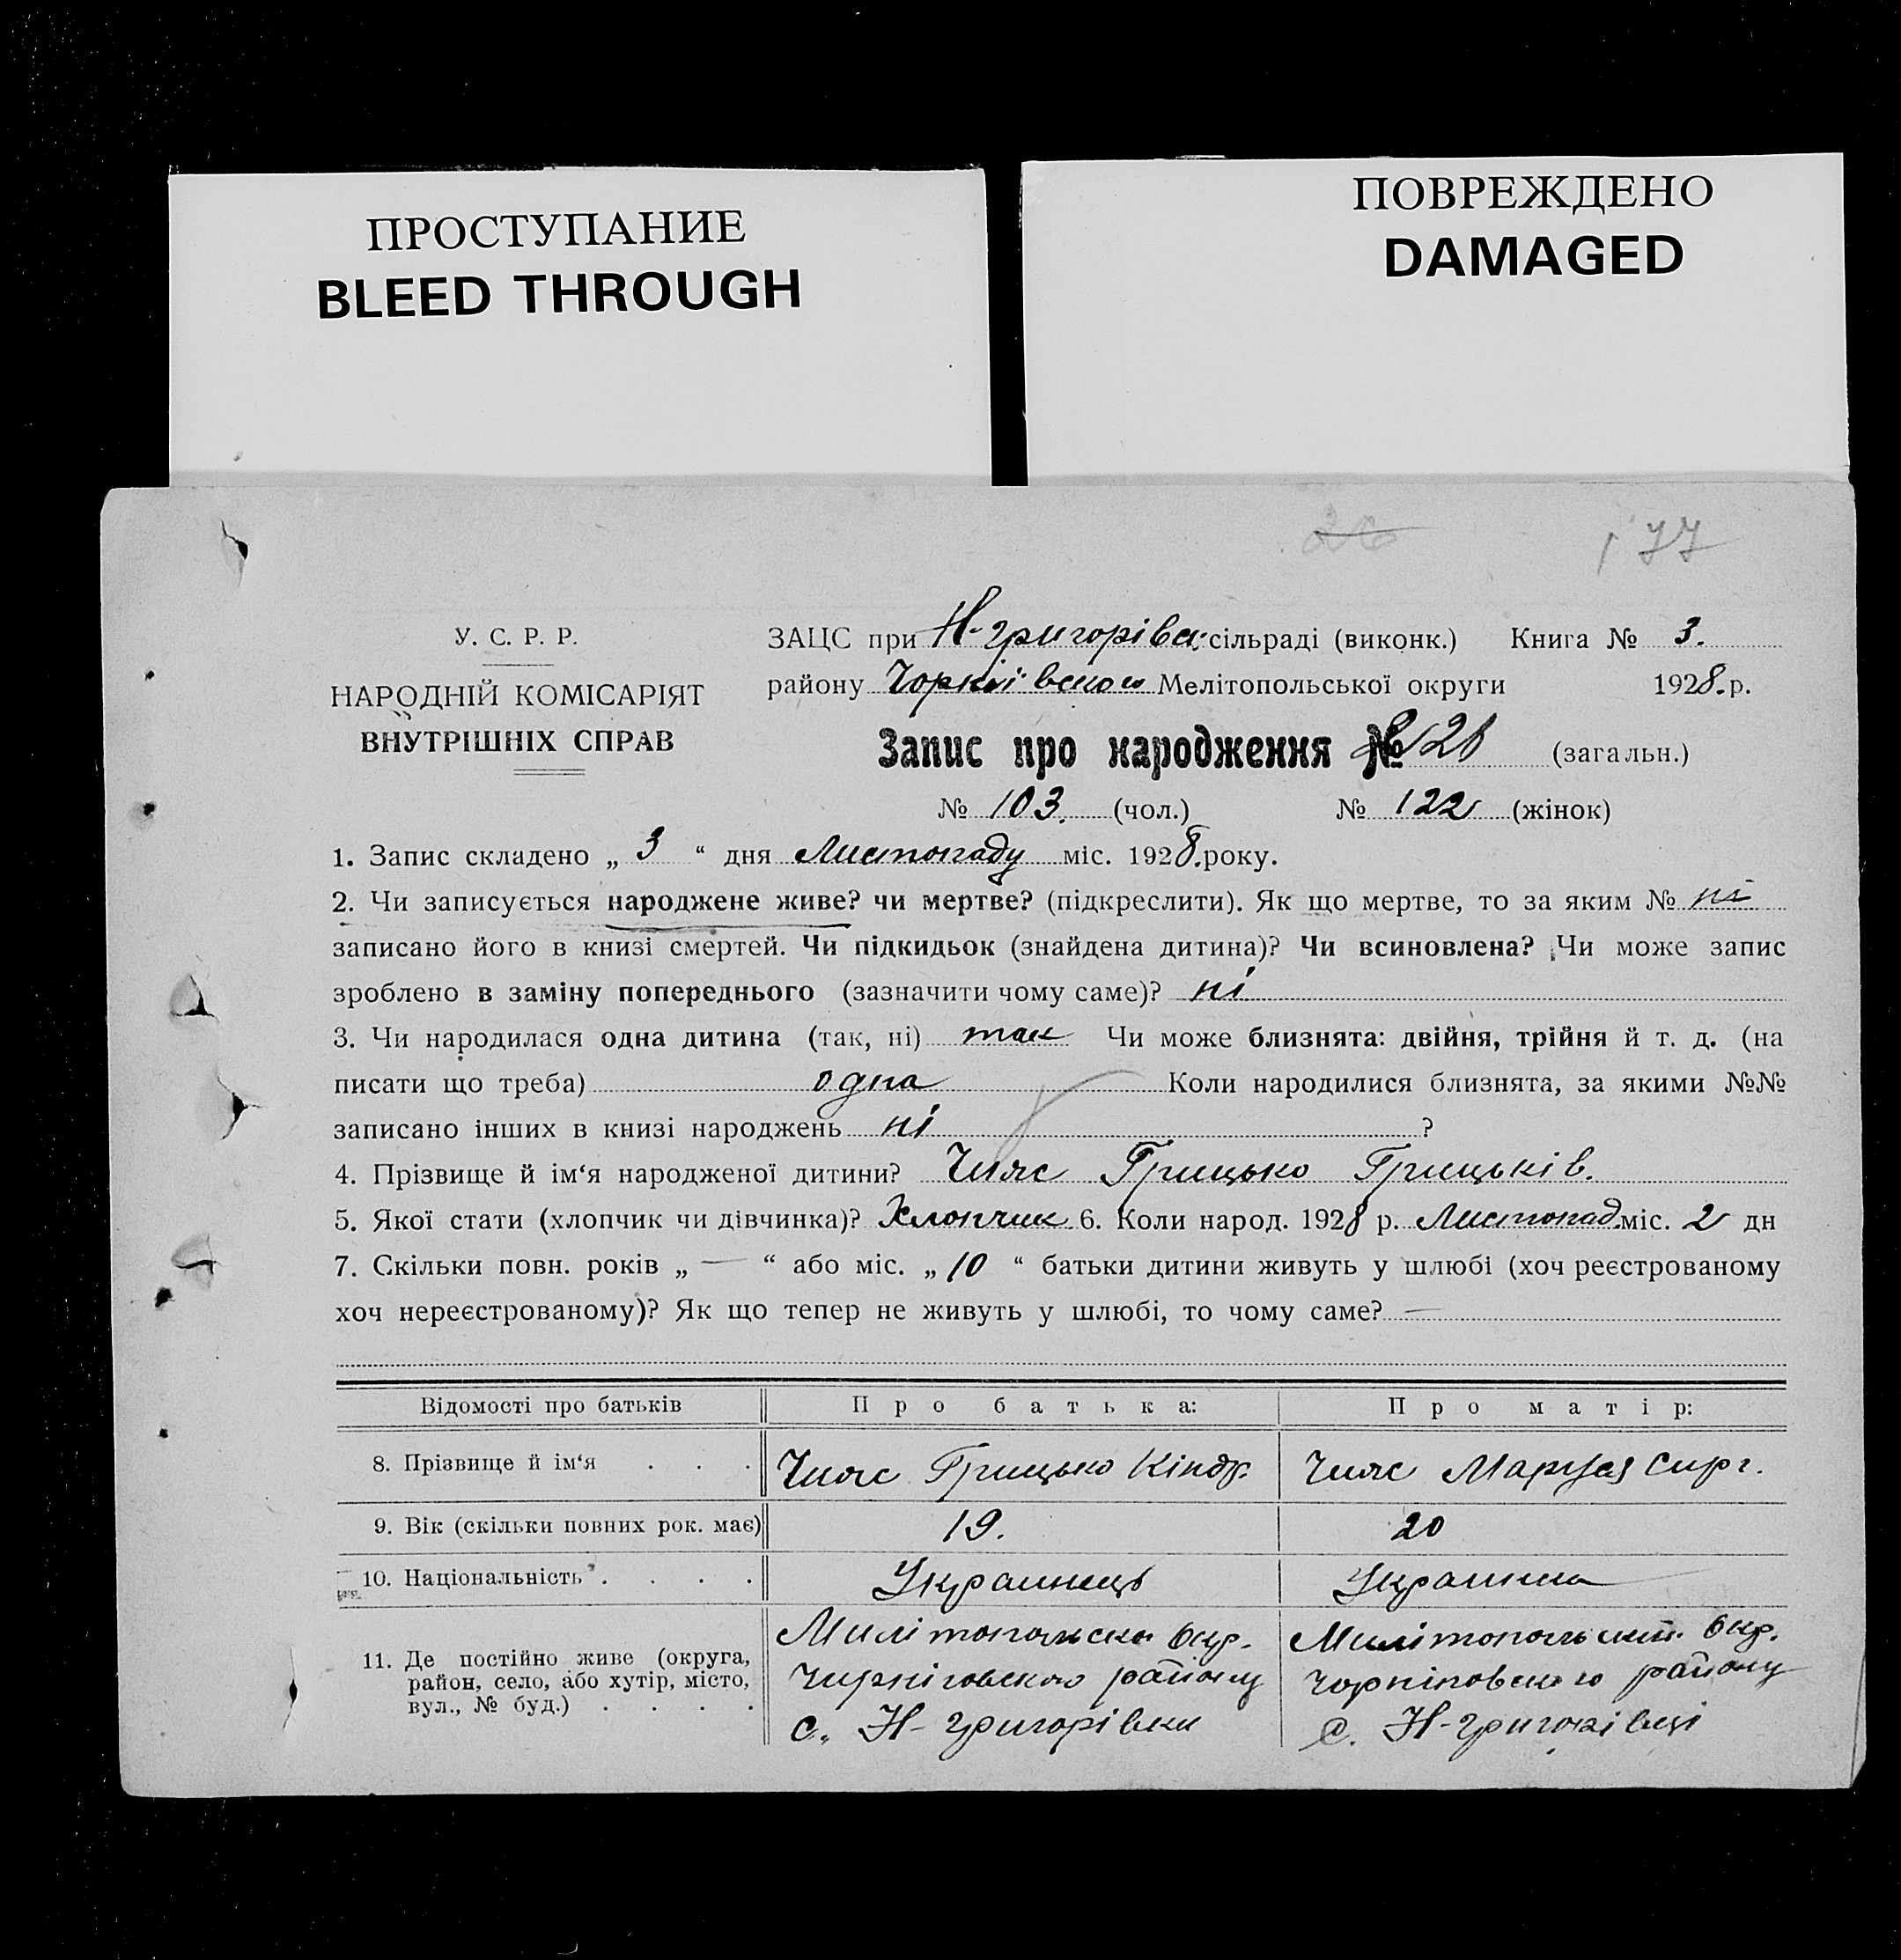 ПРОСТУПАНИЕ
BLEED THROUGH
ПОВРЕЖДЕНО
DAMAGED
26
177
У. С. Р. Р.
НАРОДНІЙ КОМІСАРІЯТ
ВНУТРІШНІХ СПРАВ
ЗАЦС при Н-григорівск. сільраді (виконк.) Книга № 3.
району Мелітопольської округи 1928.р.
Запис про народження № (загальн.)
№ 103. (чол.) № 122 (жінок)
1. Запис складено „ 3 “ дня Листопаду міс. 1928.року.
2. Чи записується народжене живе? чи мертве? (підкреслити). Як що мертве, то за яким № ні
записано його в книзі смертей. Чи підкидьок (знайдена дитина)? Чи всиновлена? Чи може запис
зроблено в заміну попереднього (зазначити чому саме)? ні
3. Чи народилася одна дитина (так, ні) так Чи може близнята: двійня, трійня й т. д. (на
писати що треба) одна Коли народилися близнята, за якими №№
записано інших в книзі народжень ні ?
4. Прізвище й ім‘я народженої дитини? Чияс Грицько Грицьків.
5. Якої стати (хлопчик чи дівчинка)? Хлопчик 6. Коли народ. 1928 р. Листопад міс. 2 дн
7. Скільки повн. років „ — “ або міс. „ 10 “ батьки дитини живуть у шлюбі (хоч реєстрованому
хоч нереєстрованому)? Як що тепер не живуть у шлюбі, то чому саме? —
Відомості про батьків Про батька: Про матір:
8. Прізвище й ім‘я . . . Чияс Грицько Кіндр. Чияс Маруся Сирг.
9. Вік (скільки повних рок. має) 19. 20
10. Національність . . . . Украинець Украинка
11. Де постійно живе (округа, район, село, або хутір, місто, вул., № буд.) . . . .
Милітопольско Окр.
Чирніговского району
с. Н-григорівки
Милітопольский Окр.
Чорніговского району
с. Н-григорівці